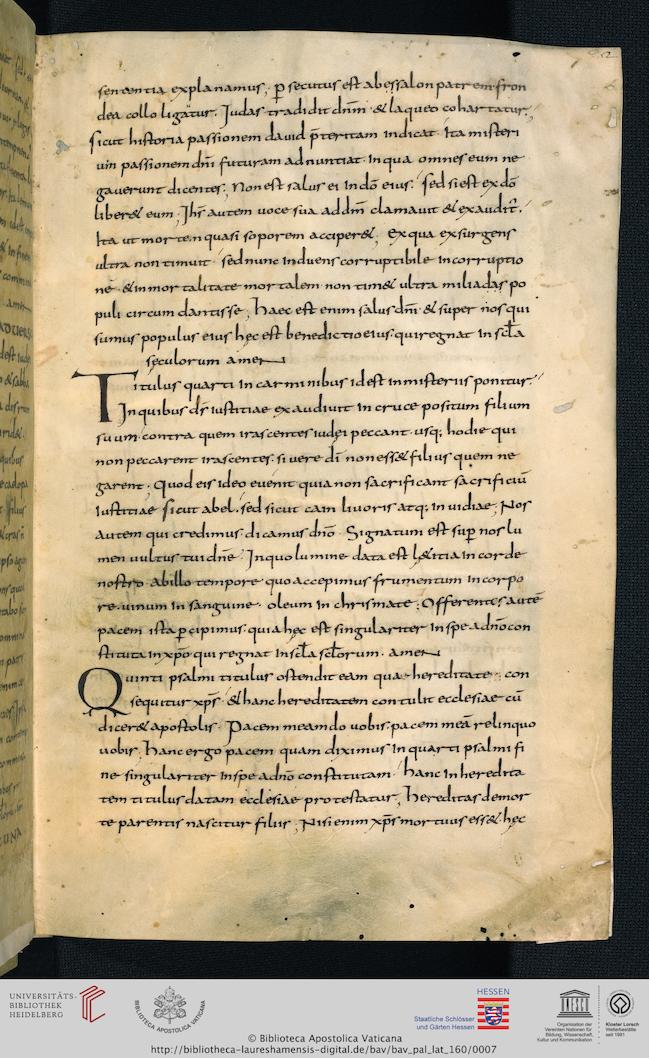 sententia explanamus; p secutus est abessalon patrem fron
dea collo ligatur. Iudas tradidit dnm & laqueo cohartatur;
sicut historia passionem dauid pteritam indicat. Ita misteri
um passionem dni futuram adnuntiat. In qua omnes eum ne
gauerunt dicentes; Non est salus ei in do eius. Sed si est ex do
liber& eum; Ihs autem voce sua ad dm clamauit & exaudit.
Ita ut mortem quasi soporem acciper&; Ex qua exsurgens
ultra non timuit. sed nunc induens corruptibile incorruptio
ne. & inmortalitate mortalem non tim& ultra miliadas po
puli circumdantis se; Haec est enim salus dni. & super nos qui
sumus populus eius hęc est benedictio eius. qui regnat in scla
sęculorum amen
Titulus quarti in carminibus id est in misteriis ponitur.
In quibus ds iustitiae exaudiuit in cruce positum filium
suum. contra quem irascentes iudei peccant. usq; hodie qui
non peccarent irascentes. si vere di non ess& filius quem ne
garent; Quod eis ideo euenit quia non sacrificant sacrificiu
iustitiae sicut abel. sed sicut cain liuoris atq; inuidiae; Nos
autem qui credimus. dicamus dno. Signatum est sup nos lu
men uultus tui dne. In quo lumine data est l&itia in corde
nostro. ab illo tempore quo accepimus frumentum in corpo
re. uinum in sanguine. oleum in chrismate; Offerentes aute
pacem ista pcipimus. quia hęc est singulariter in spe ad no con
stituta in xpo qui regnat in scla sclorum. amen
Quinti psalmi titulus ostendit eam quae hereditate. con
sequitur xps. & hanc hereditatem contulit ecclesiae cu
dicer& apostolis. Pacem meam do uobis. pacem mea relinquo
uobis. Hanc ergo pacem quam diximus in quarti psalmi fi
ne singulariter in spe ad no constitutam. hanc in heredita
tem titulus datam ecclesiae protestatur; Hereditas de mor
te parentis nascitur filiis; Nisi enim xps mortuus ess& hęc
UNIVERSITÄTS-
BIBLIOTHEK
HEIDELBERG
BIBLIOTECA APOSTOLICA VATICANA
HESSEN
Staatliche Schlösser
und Gärten Hessen
Organisation der
Vereinten Nationen für
Bildung, Wissenschaft,
Kultur und Kommunikation
Kloster Lorsch
Welterbestätte
seit 1991
© Biblioteca Apostolica Vaticana
http://bibliotheca-laureshamensis-digital.de/bav/bav_pal_lat_160/0007